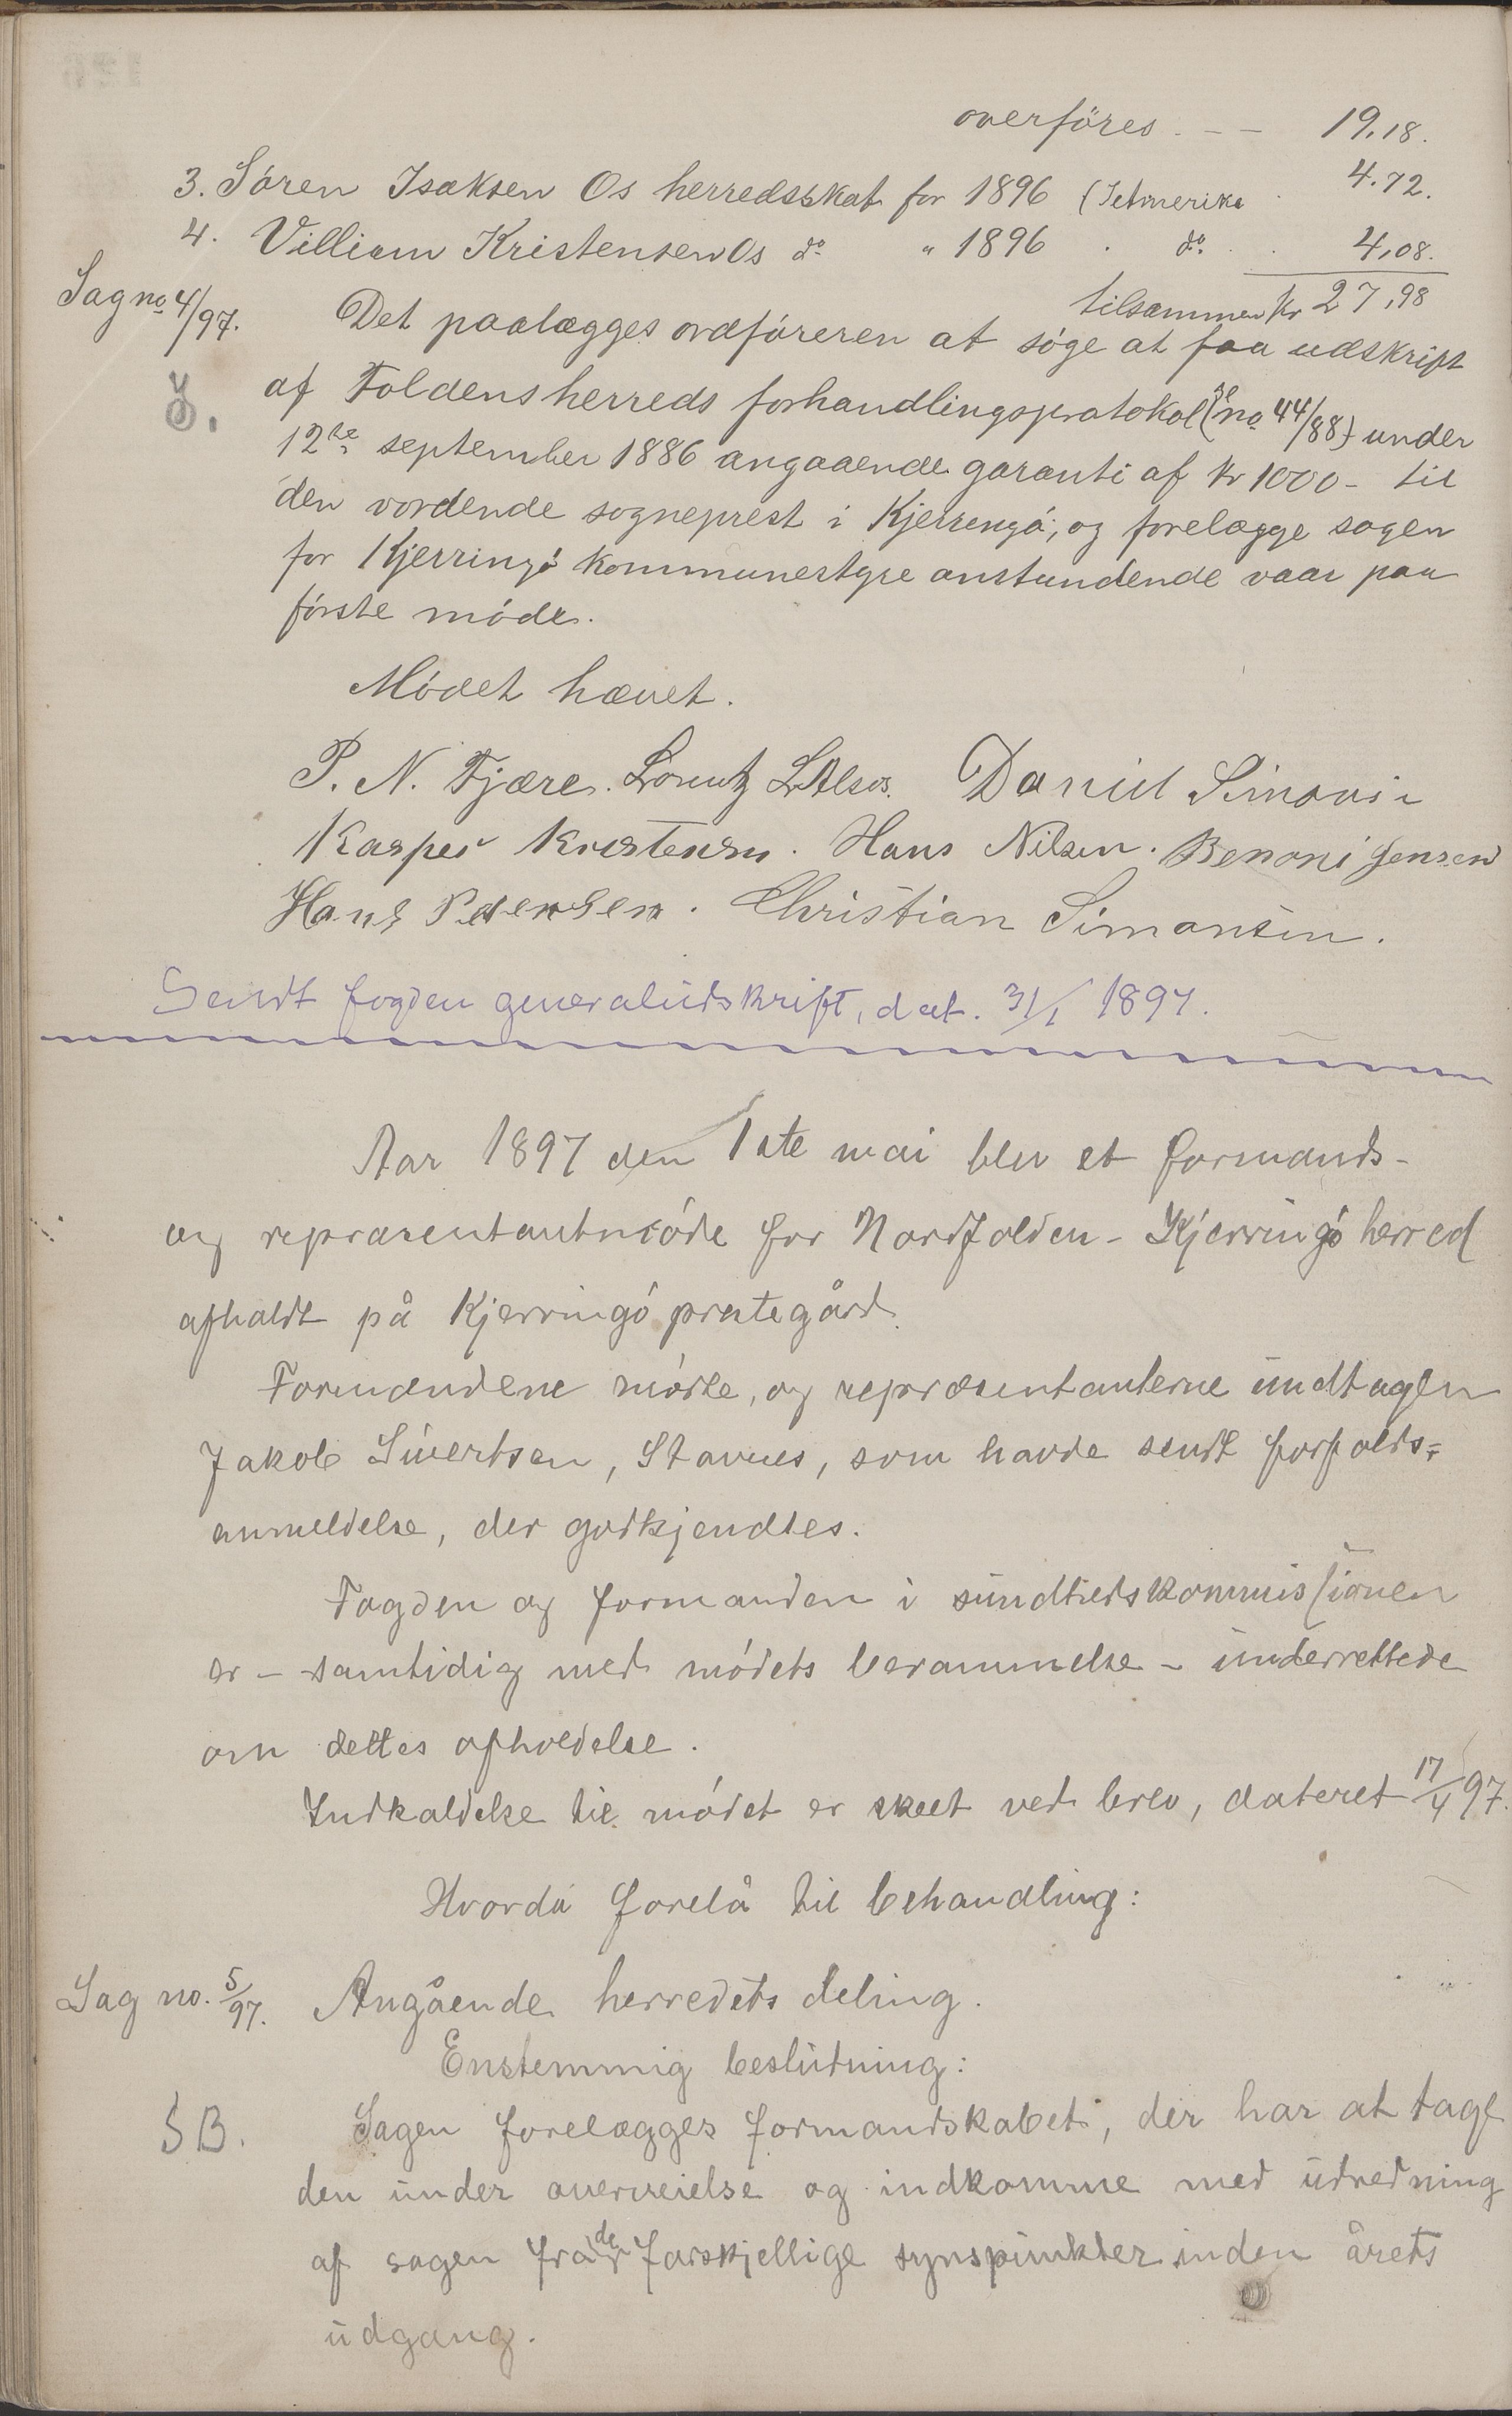 overföres - - - 19.18.
3. Sören Isaksen Os herredsskat for 1896 (I Amerika 4.72.
4. Villiam Kristensen Os do " 1896 . do . . 4,08.
tilsammen kr 27,98
Sag no 4/97. Det paalægges ordföreren at söge at faa udskrift
af Foldens herreds forhandlingsprotokol (no 44/88) under
12te september 1886 angaaende garanti af kr 1000- til
den vordende sogneprest i Kjerringö, og forelægge sagen
for Kjerringö kommunestyre anstundende vaar paa
förste möde.
Mödet hævet.
P. N. Fjære. Lorentz L. Alsos. Daniel Simonsen
Kasper Kristensen. Hans Nilsen. Benoni Jensen
Hans Pedersen. Christian Simonsen.
Sendt fogden generaludskrift, dat. 31/1 1897.
Aar 1897 den 1ste mai blev et formands-
og repræsentantmöde for Nordfolden-Kjerringö herred
afholdt på Kjerringö prestegård.
Formændene mödte, og repræsentanterne undtagen
Jakob Sivertsen, Stavnes, som havde sendt forfalds=
anmeldelse, der godkjendtes.
Fogden og formanden i sundhedskommissionen
er - samtidig med mödets berammelse - underrettede
om dettes afholdelse.
Indkaldelse til mödet er skeet ved brev, dateret 17/4 97.
Hvorda forelå til behandling:
Sag no. 5/97. Angående herredets deling.
Enstemmig beslutning:
S B. Sagen forelægges formandskabet, der har at tage
den under overveielse og indkomme med udredning
af sagen fra de forskjellige synspunkter inden årets
udgang.